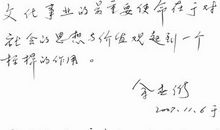 文化事业的最重要使命在于对
社会的思想与价值观起到一个
标杆的作用。
余
2007.11.6于